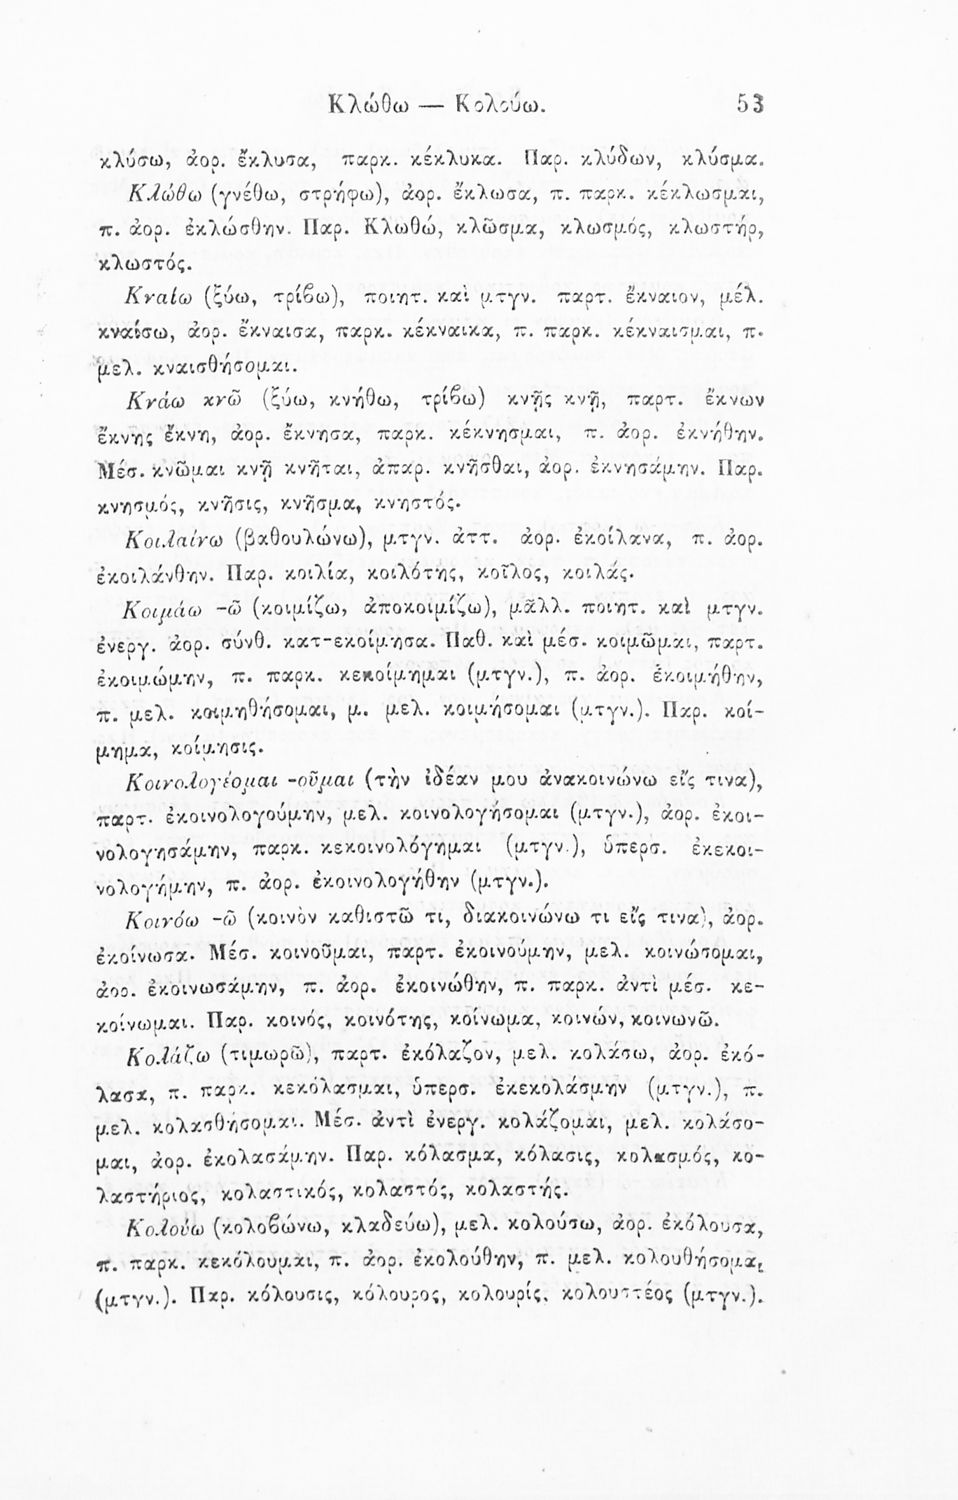 Κλώθω — Κολούω. 53
κλύσω, ἀορ. ἔκλυσα, παρκ. κέκλυκα. Παρ. κλύδων, κλύσμα.
Κλώθω (γνέθω, στρήφω), ἀορ. ἔκλωσα, π. παρκ. κέκλωσμαι,
π. ἀορ. ἐκλώσθην. Παρ. Κλωθώ, κλῶσμα, κλωσμός, κλωστήρ,
κλωστός.
Κναίω (ξύω, τρίβω), ποιητ. καὶ μτγν. παρτ. ἔκναιον, μέλ.
κναίσω, ἀορ. ἔκναισα, παρκ. κέκναικα, π. παρκ. κέκναισμαι, π.
μελ. κναισθήσομαι.
Κνάω κνῶ (ξύω, κνήθω, τρίβω) κνῇς κνῇ, παρτ. ἔκνων
ἔκνης ἔκνη, ἀορ. ἔκνησα, παρκ. κέκνησμαι, π. ἀορ. ἐκνήθην.
Μέσ. κνῶμαι κνῇ κνῆται, ἀπαρ. κνῆσθαι, ἀορ. ἐκνησάμην. Παρ.
κνησμός, κνῆσις, κνῆσμα, κνηστός.
Κοιλαίνω (βαθουλώνω), μτγν. ἀττ. ἀορ. ἐκοίλανα, π. ἀορ.
ἐκοιλάνθην. Παρ. κοιλία, κοιλότης, κοῖλος, κοιλάς.
Κοιμάω -ῶ (κοιμίζω, ἀποκοιμίζω), μᾶλλ. ποιητ. καὶ μτγν.
ἐνεργ. ἀορ. σύνθ. κατ-εκοίμησα. Παθ. καὶ μέσ. κοιμῶμαι, παρτ.
ἐκοιμώμην, π. παρκ. κεκοίμημαι (μτγν.), π. ἀορ. ἐκοιμήθην,
π. μελ. κοιμηθήσομαι, μ. μελ. κοιμήσομαι (μτγν.). Παρ. κοί-
μημα, κοίμησις.
Κοινολογέομαι -οῦμαι (τὴν ἰδέαν μου ἀνακοινώνω εἴς τινα),
παρτ. ἐκοινολογούμην, μελ. κοινολογήσομαι (μτγν.), ἀορ. ἐκοι-
νολογησάμην, παρκ. κεκοινολόγημαι (μτγν.), ὑπερσ. ἐκεκοι-
νολογήμην, π. ἀορ. ἐκοινολογήθην (μτγν.).
Κοινόω -ῶ (κοινὸν καθιστῶ τι, διακοινώνω τι εἴς τινα), ἀορ.
ἐκοίνωσα. Μέσ. κοινοῦμαι, παρτ. ἐκοινούμην, μελ. κοινώσομαι,
ἀορ. ἐκοινωσάμην, π. ἀορ. ἐκοινώθην, π. παρκ. ἀντὶ μέσ. κε-
κοίνωμαι. Παρ. κοινός, κοινότης, κοίνωμα, κοινών, κοινωνῶ.
Κολάζω (τιμωρῶ), παρτ. ἐκόλαζον, μελ. κολάσω, ἀορ. ἐκό-
λασα, π. παρκ. κεκόλασμαι, ὑπερσ. ἐκεκολάσμην (μτγν.), π.
μελ. κολασθήσομαι. Μέσ. ἀντὶ ἐνεργ. κολάζομαι, μελ. κολάσο-
μαι, ἀορ. ἐκολασάμην. Παρ. κόλασμα, κόλασις, κολασμός, κο-
λαστήριος, κολαστικός, κολαστός, κολαστής.
Κολούω (κολοβώνω, κλαδεύω), μελ. κολούσω, ἀορ. ἐκόλουσα,
π. παρκ. κεκόλουμαι, π. ἀορ. ἐκολούθην, π. μελ. κολουθήσομαι
(μτγν.). Παρ. κόλουσις, κόλουρος, κολουρίς, κολουστέος (μτγν.).